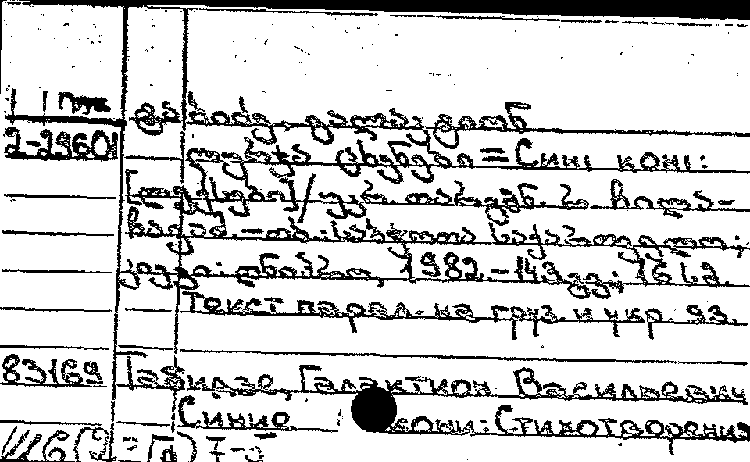 2-29601
ტაბიძე, გალაკტიონ
ლურჯა ცხენები = Сині коні:
[ლექსები] / უკრ. თარგმნ. რ. ჩილა-
ჩავამ. – თბ.: საბჭოთა საქართველო;
კიევი: დნიპრო, 1982. – 143 გვ.; 16 სმ.
Текст парал. на груз. и укр. яз.
83169 Табидзе, Галактион Васильевич
Синие кони: Стихотворения